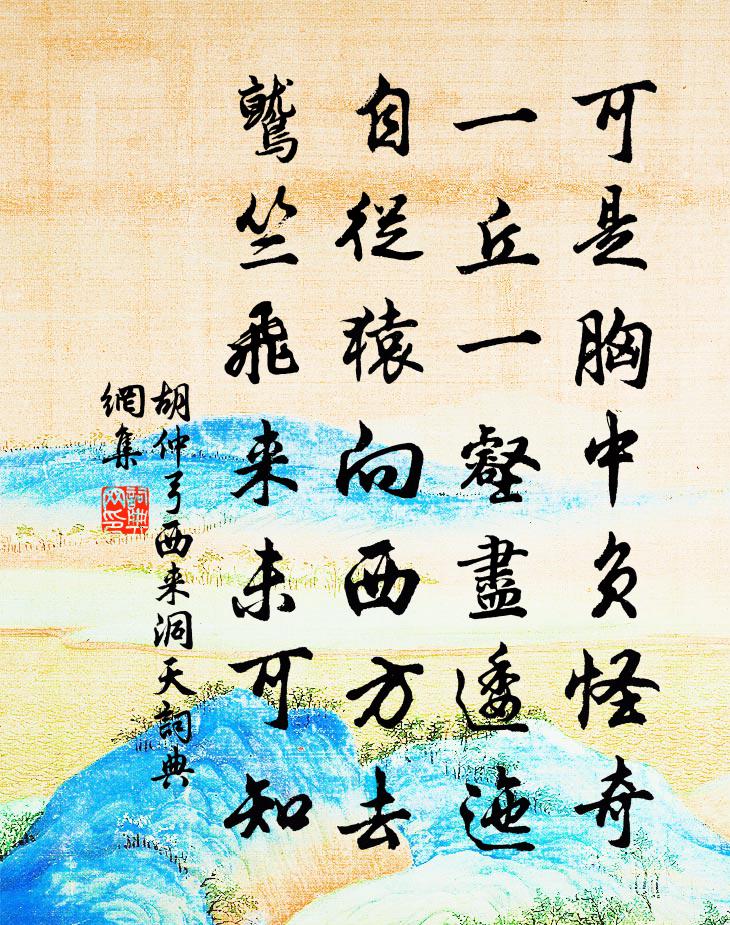 可是胸中負怪奇
一丘一壑盡逶迤
自從猿向西方去
鷲竺飛来未可知
胡仲弓西来洞天詞典
網集
詞典網印